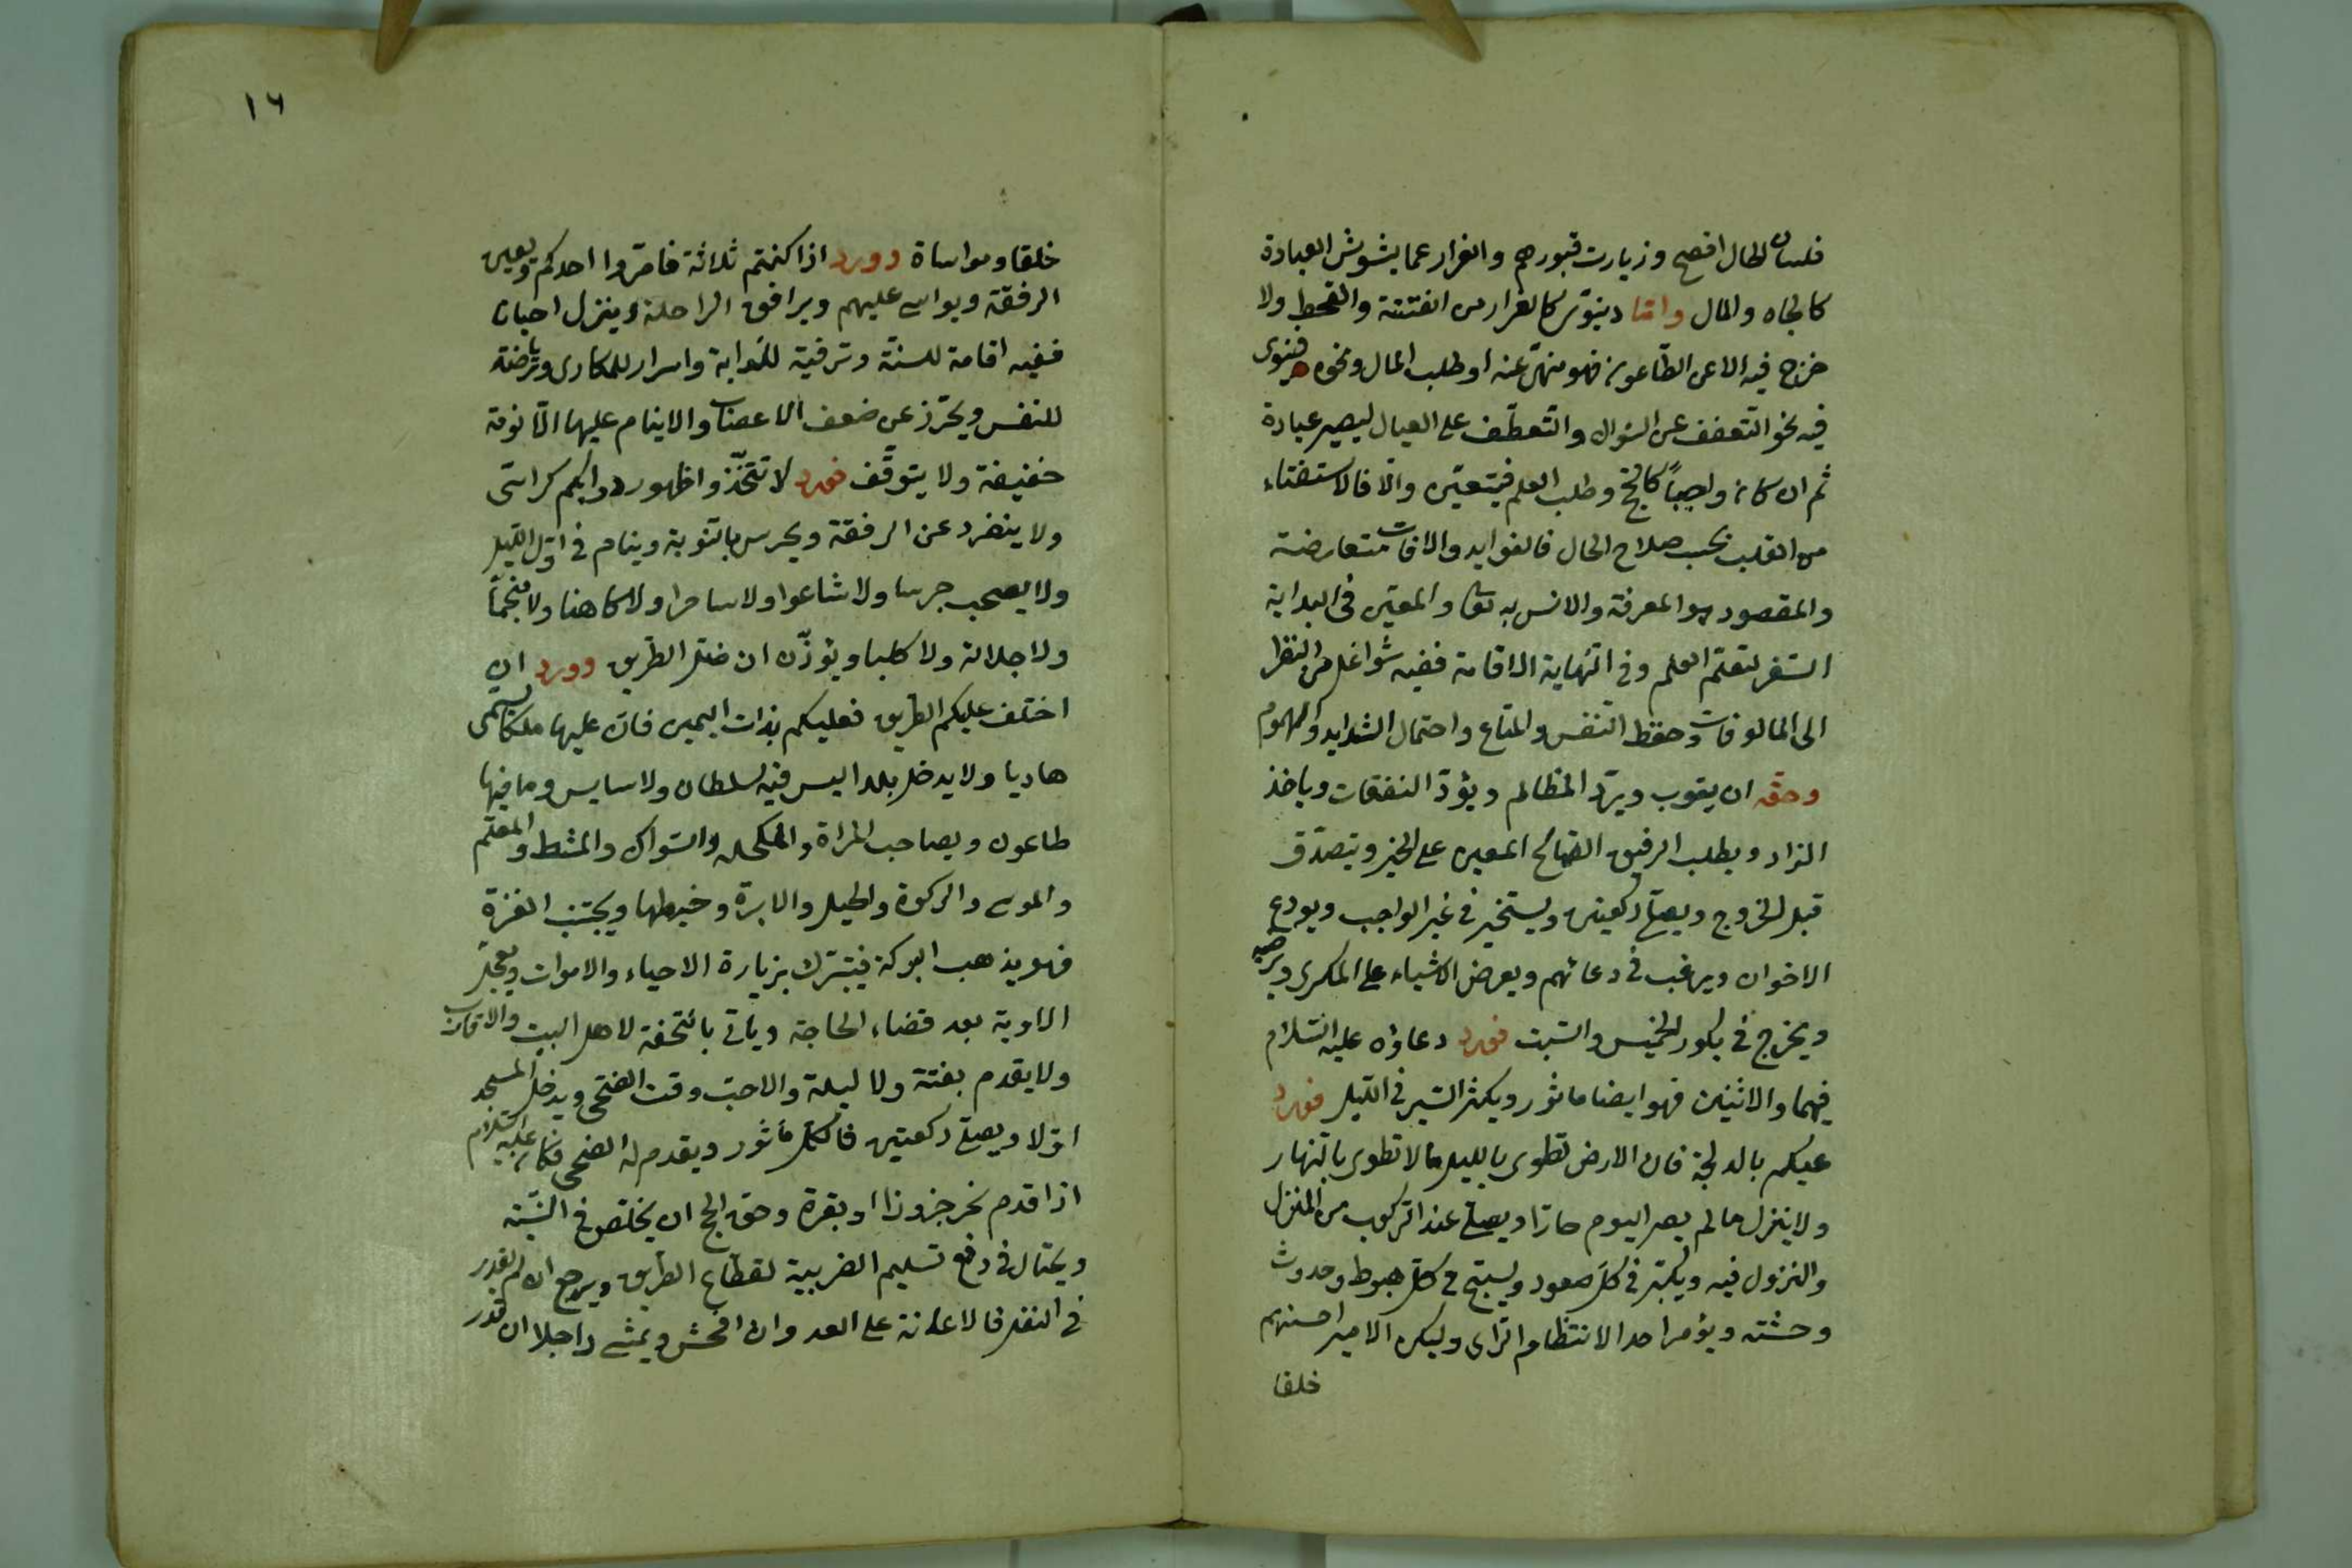 فلسان الحال افصح وزيارت قبورهم والفرار عما يشوش العبادة
كالجاه والمال واما دنيوي كالفرار من الفتنة والقحط ولا
خرج فيه الا عن الطاعون فهو منهى عنه او طلب المال ونحوه فينوى
فيه نحو التعفف عن السؤال والتعطف على العيال ليصير عبادة
ثم ان كان واجباً كالحج وطلب العلم فيتعين والا فالاستفتاء
من القلب بحسب صلاح الحال فالفوايد والافات متعارضة
والمقصود هو المعرفة والانس به تعالى والمعين فى البداية
السفر لتعلم العلم وفى النهاية الاقامة ففيه شواغل من النظر
الى المالوفات وحفظ النفس والمتاع واحتمال الشدايد والهموم
وحقه ان يتوب ويرد المظالم ويؤد النفقات وياخذ
الزاد ويطلب الرفيق الصالح المعين على الخير ويتصدق
قبل الخروج ويصلى ركعتين ويستخير فى غير الواجب ويودع
الاخوان ويرغب فى دعائهم ويعرض الاشياء على المكرى ويرضيه
ويخرج فى بكور الخميس والسبت فورد دعاؤه عليه السلام
فيهما والاثنين فهو ايضا ماثور ويكثر السير فى الليل فورد
عليكم بالدلجة فان الارض تطوى بالليل ما لا تطوى بالنهار
ولا ينزل ما لم يصر اليوم حارا ويصلى عند الركوب من المنزل
والنزول فيه ويكبر فى كل صعود ويسبح فى كل هبوط وحدوث
وحشته ويؤمر احد الانتظام الراى وليكن الامير احسنهم
خلقا
١٦
خلقا ومواساة وورد اذا كنتم ثلاثة فامروا احدكم ويعين
الرفقة ويواسى عليهم ويرافق الراحلة وينزل احيانا
ففيه اقامة للسنة وترفية للدابة واسرار للمكارى ورياضة
للنفس ويحترز عن ضعف الاعصاب والاينام عليها الا نومة
خفيفة ولا يتوقف فورد لا تتخذوا ظهور دوابكم كراسى
ولا ينفرد عن الرفقة ويحرس بالنوبة وينام فى اول الليل
ولا يصحب جرسا ولا شاعرا ولا ساحرا ولا كاهنا ولا منجماً
ولا جلالة ولا كلبا ويؤذن ان ضل الطريق وورد ان
اختلف عليكم الطريق فعليكم بذات اليمين فان عليها ملكا يسمى
هاديا ولا يدخل بلدا ليس فيه سلطان ولا سايس وما فيها
طاعون ويصاحب المراة والمكحلة والسواك والمشط و
والموسى والركوة والحبل والابرة وخيطها ويجتنب الغزة
فهو يذهب البركة فيتبرك بزيارة الاحياء والاموات ويعجل
الاوبة بعد قضاء الحاجة وياتى بالتحفة لاهل البيت والاقارب
ولا يقدم بغتة ولا ليلة والاحب وقت الضحى ويدخل المسجد
اولا ويصلى ركعتين فالكل مأثور ويقدم له الضحى فكان عليه السلام
اذا قدم نحر جزورا او بقرة وحق الحج ان يخلص فى النية
ويحتال فى دفع تسليم الضريبة لقطاع الطريق ويرجع ان لم يقدر
فى النفل فالاعانة على العدوان افحش ويمشى راجلا ان قدر